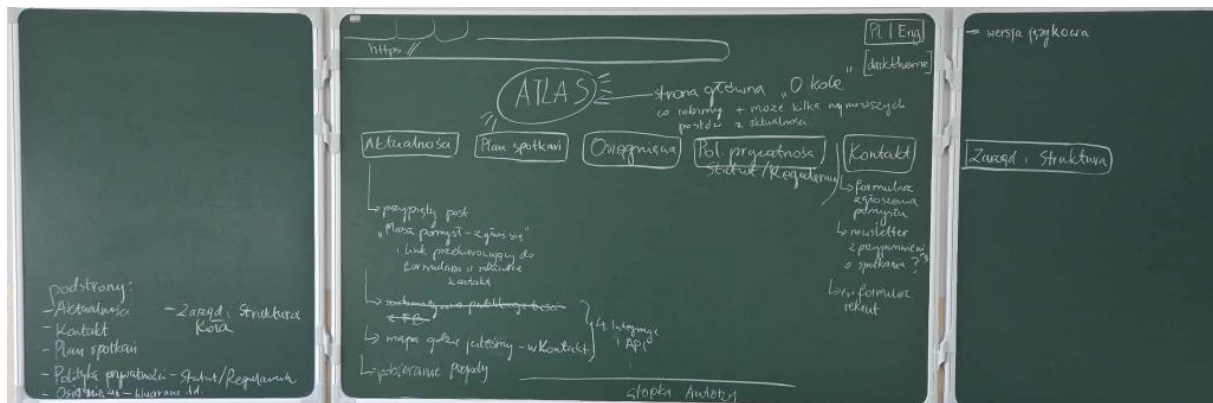 podstrony:
- Aktualności
- Zarząd i Struktura
Koła
- Kontakt
- Plan spotkań
- Polityka prywatności - Statut/Regulamin
https://
PL | Eng
[dark theme]
ATLAS
strona główna "O kole"
co robimy + może kilka najnowszych
postów z aktualności
Aktualności
Plan spotkań
Osiągnięcia
Pol. prywatności
Statut/Regulamin
Kontakt
przypięty post
"Masz pomysł - zgłoś się"
link przekierowujący do
formularza w zakładce
kontakt
z FB
mapa gdzie jesteśmy - w Kontakt
pobieranie pogody
4. Integracje
i API
formularz
zgłoszenia
pomysłu
newsletter
z przypomnieniem
o spotkaniu ?
formularz
rekrut
stopka Autorzy
→ wersja językowa
Zarząd i Struktura